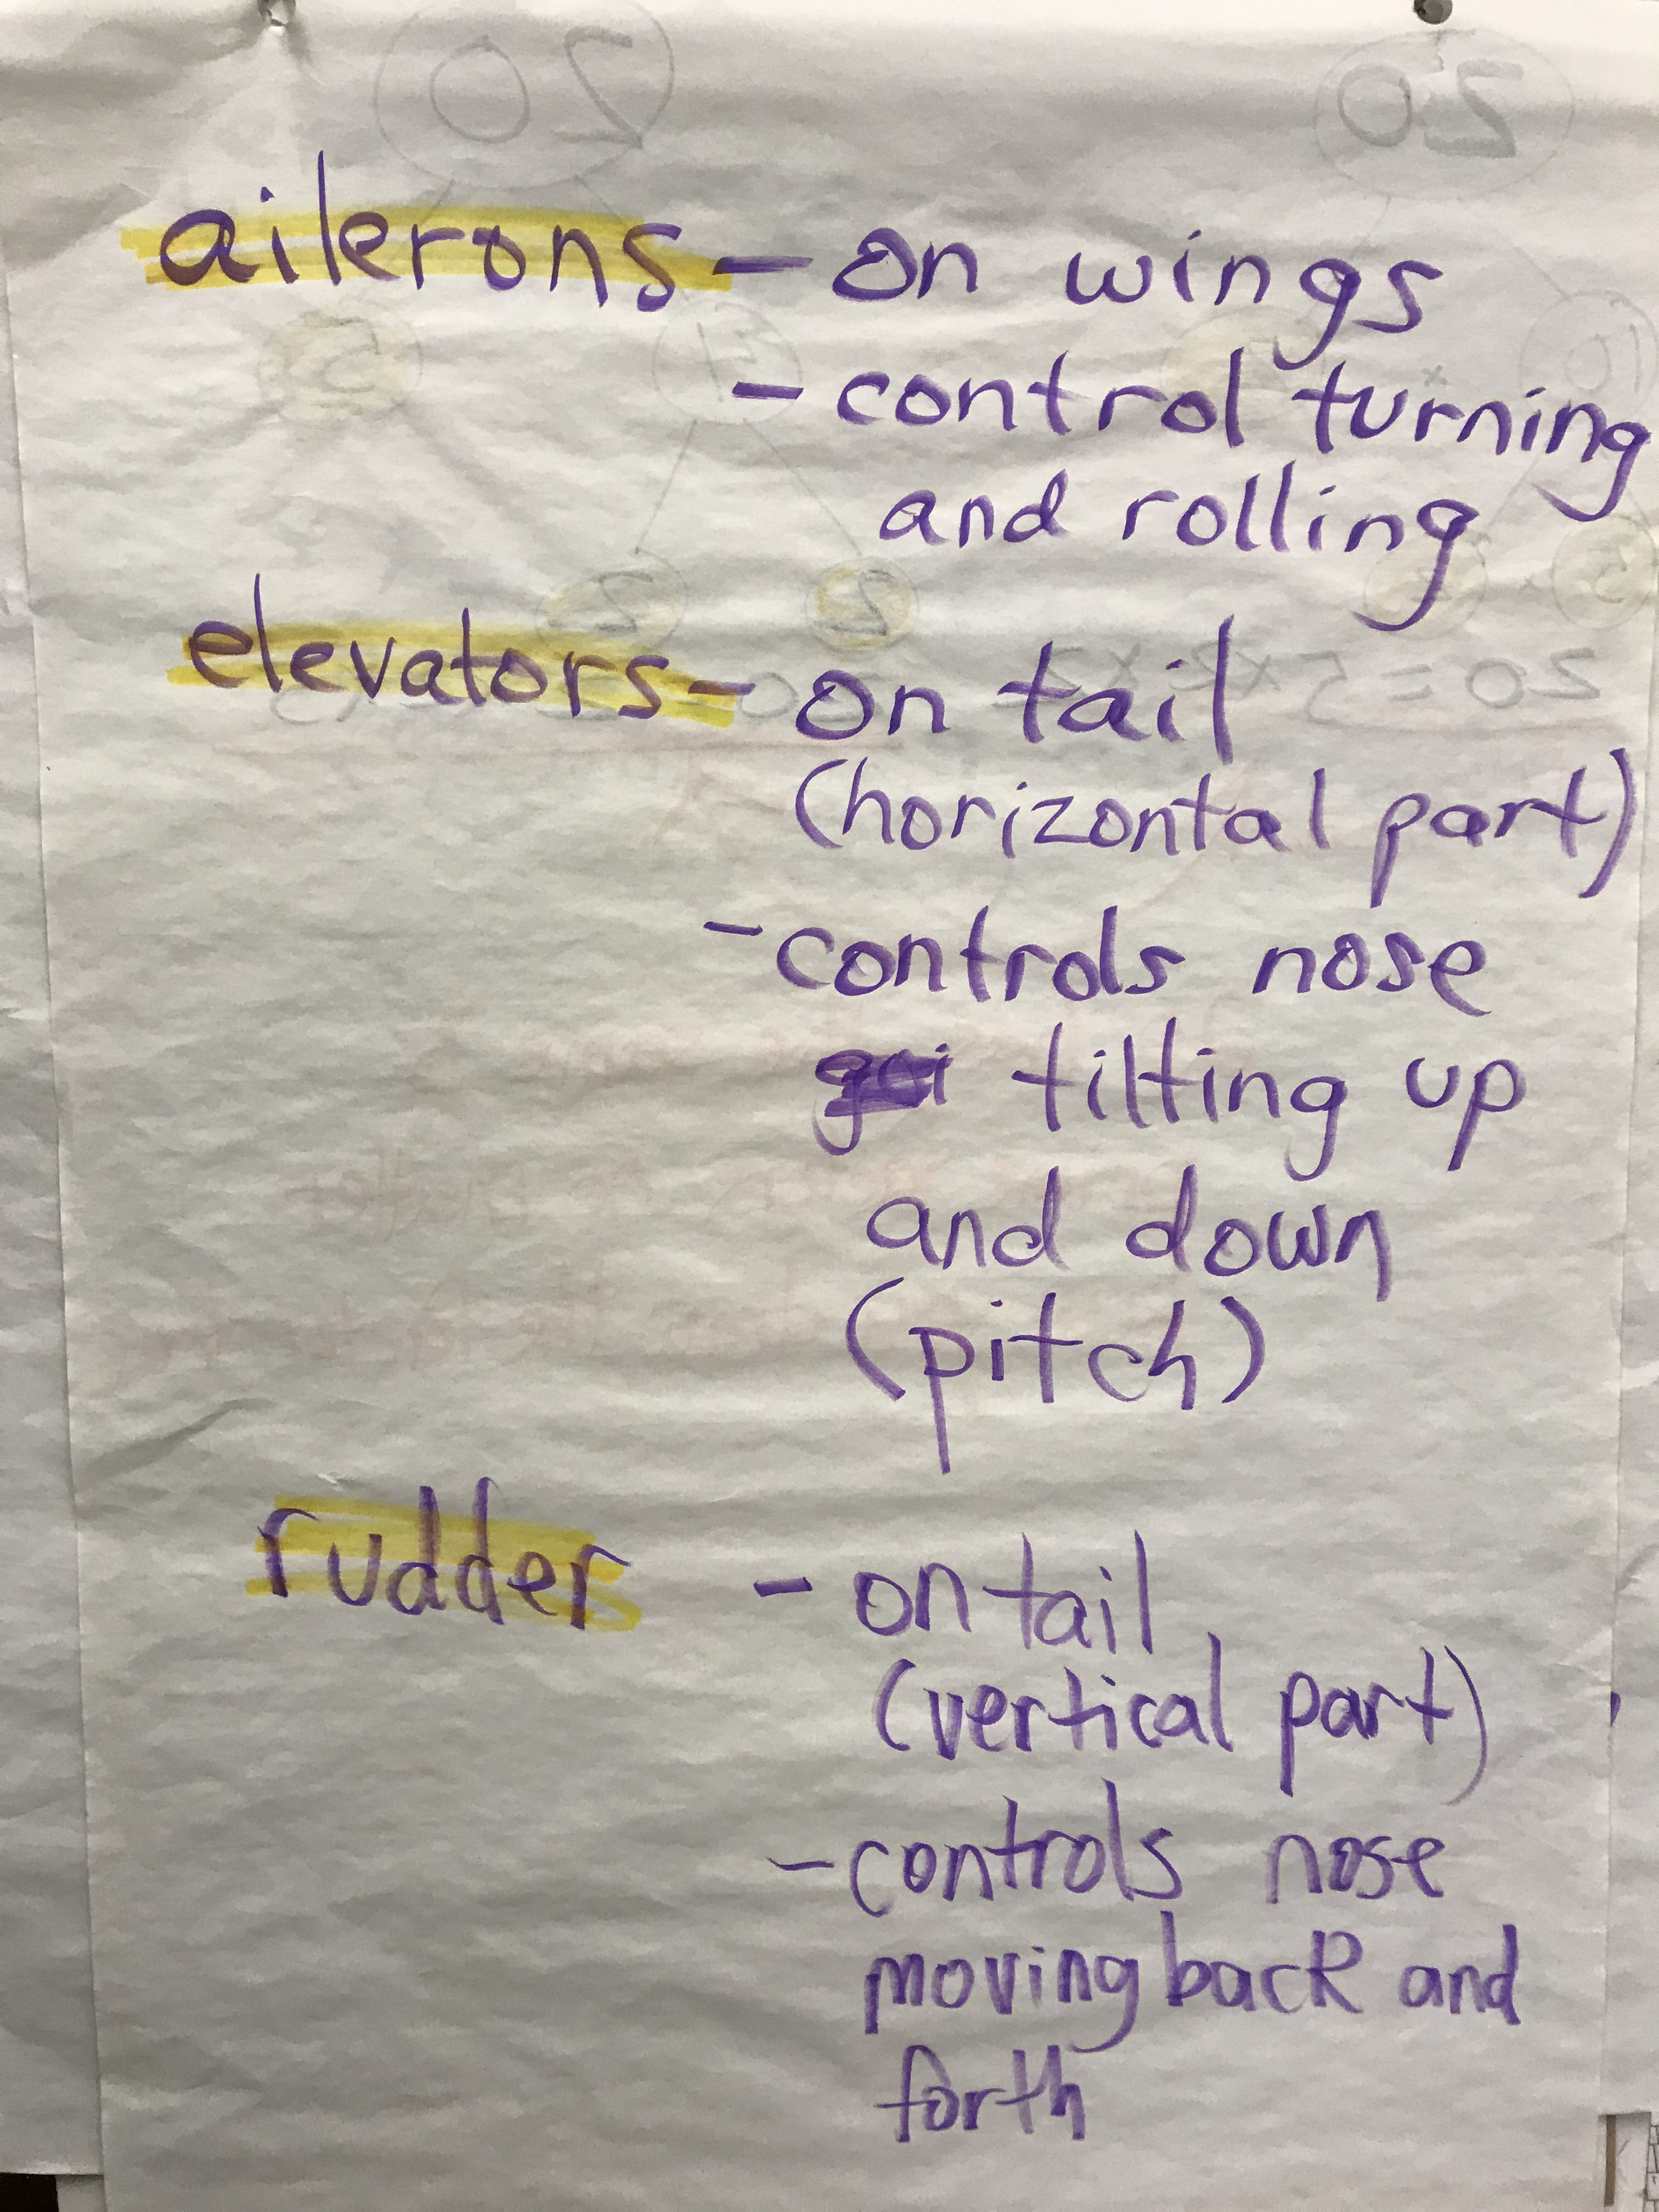 ailerons - on wings
- control turning
and rolling
elevators - on tail
(horizontal part)
- controls nose
tilting up
and down
(pitch)
rudder - on tail
(vertical part)
- controls nose
moving back and
forth